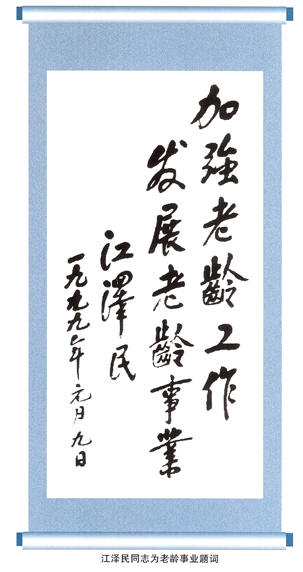 加強老齡工作
发展老齡事業
江澤民
一九九九年元月九日
江泽民同志为老龄事业题词